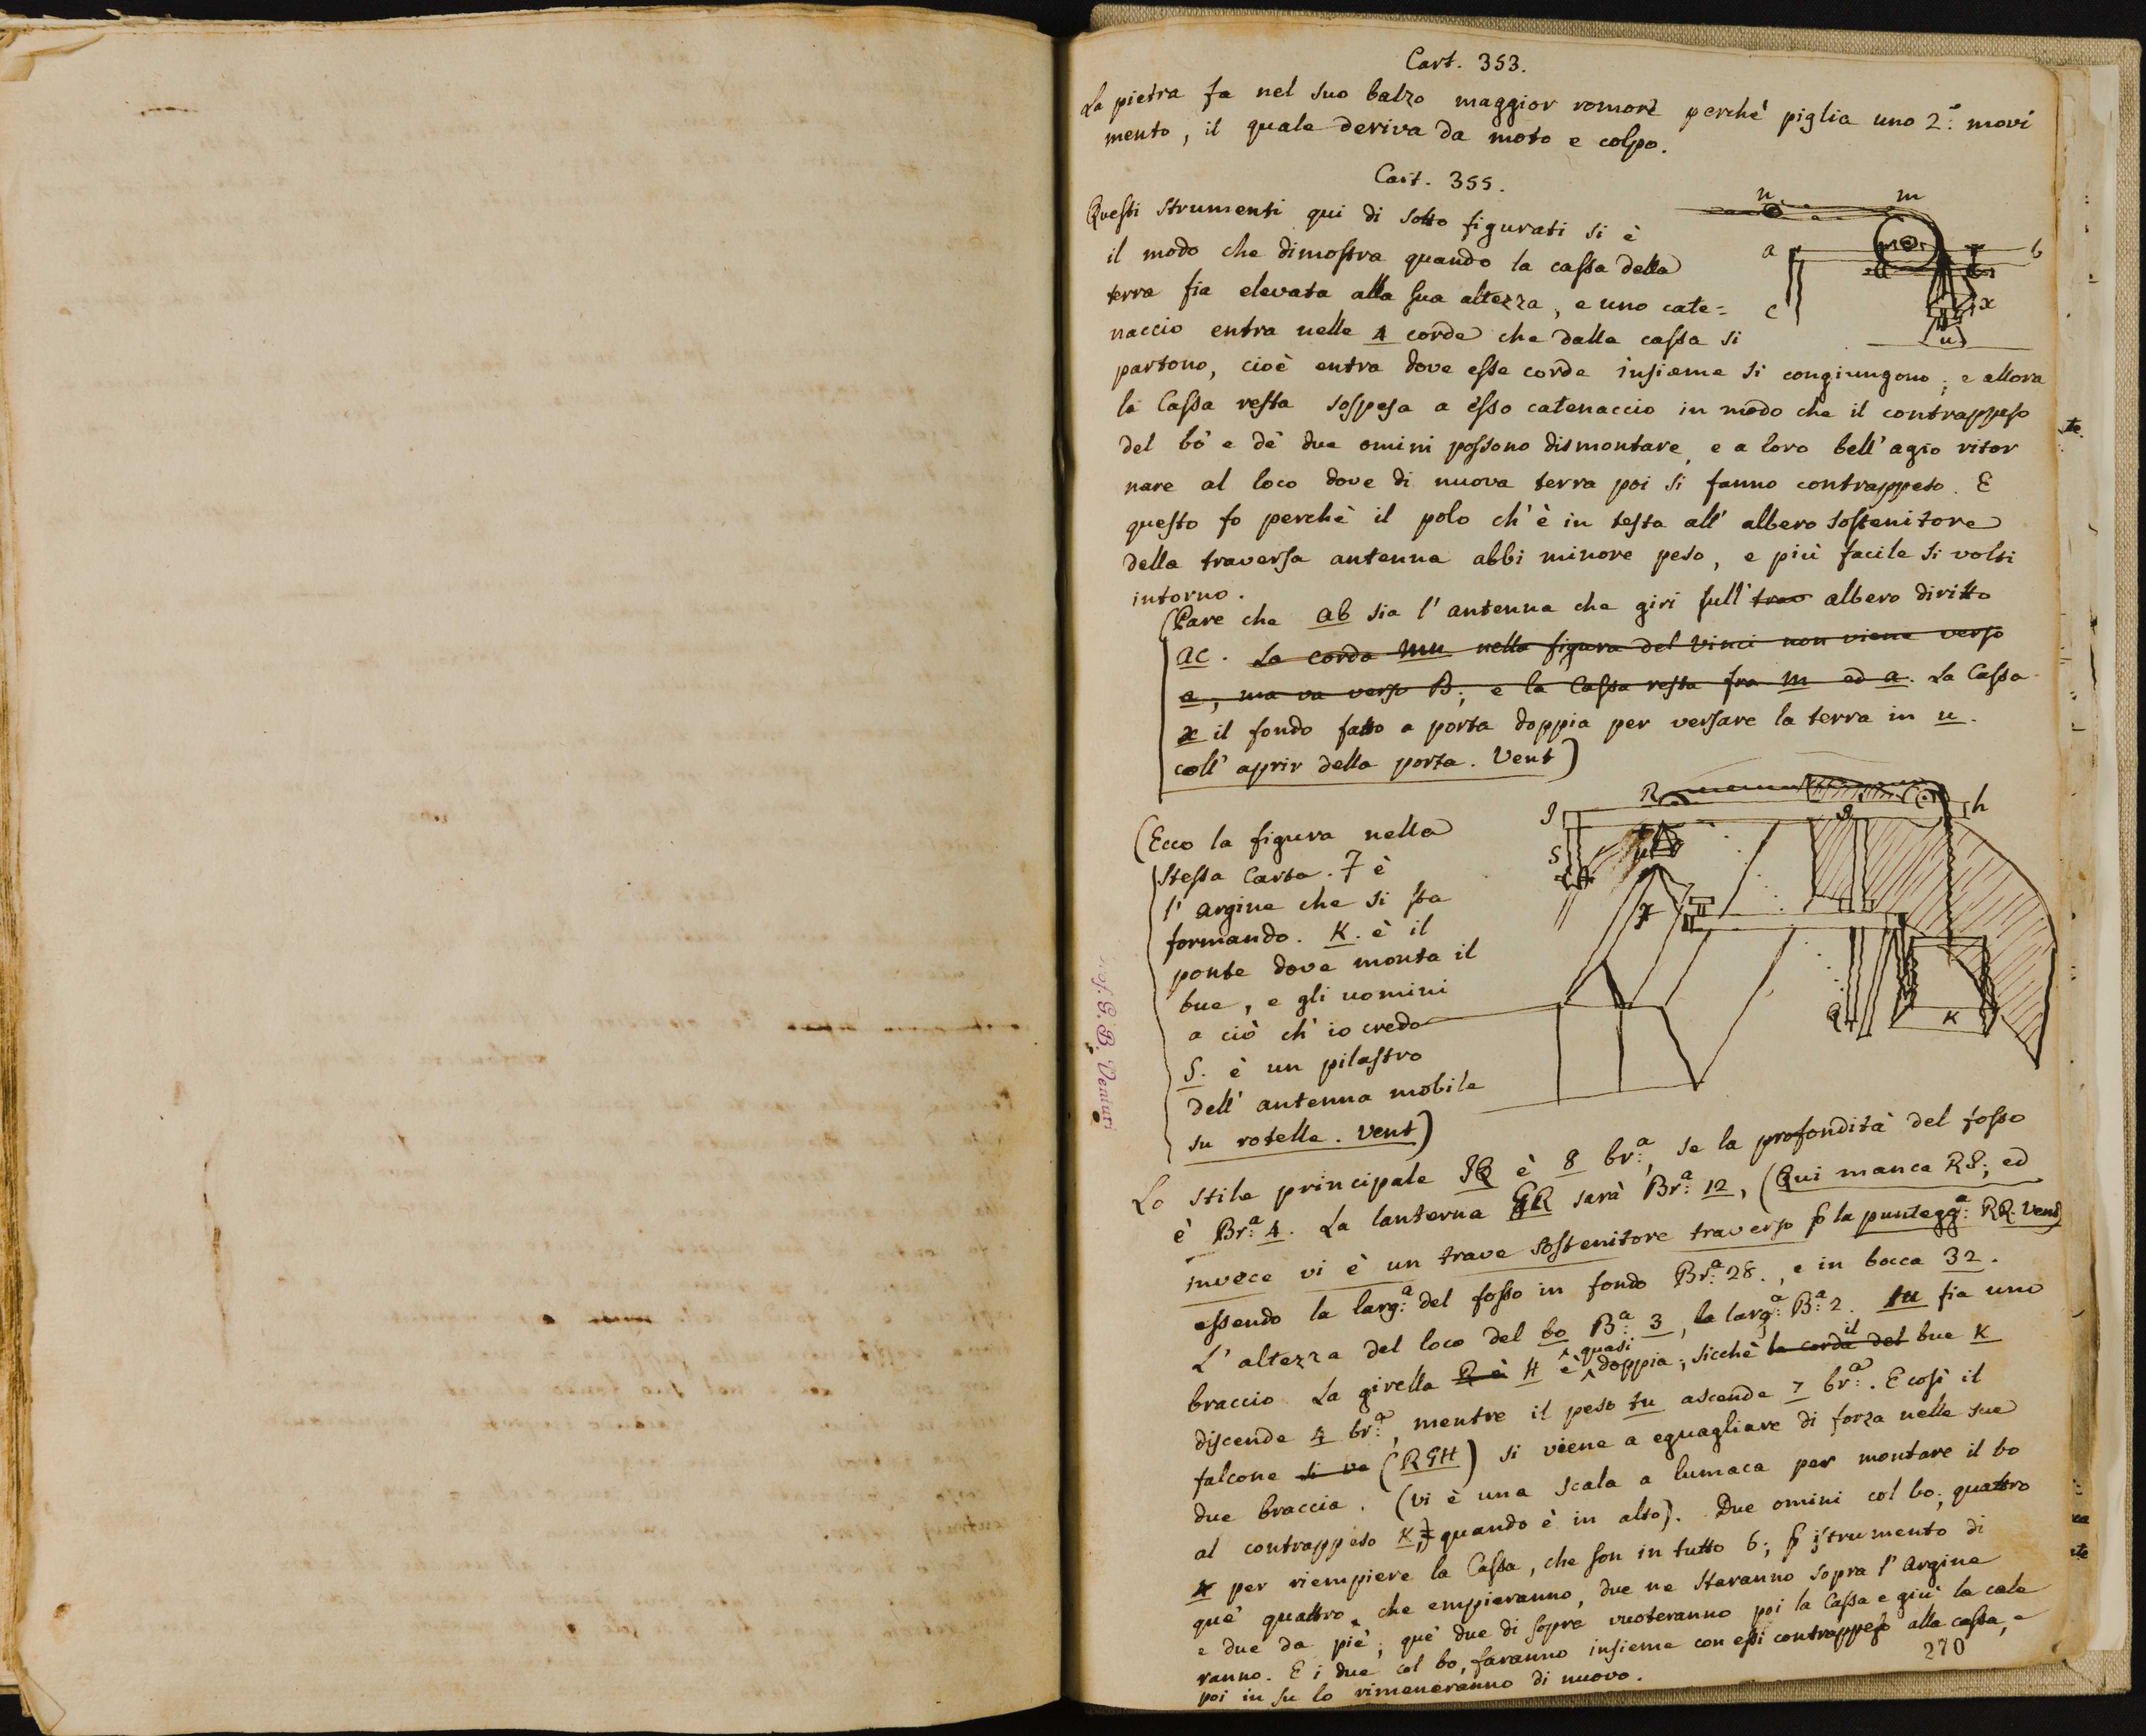 Cart. 353.
La pietra fa nel suo balzo maggior romore perchè piglia uno 2.º movi
mento, il quale deriva da moto e colpo.
Cart. 355.
Questi strumenti qui di sotto figurati si è
il modo che dimostra quando la cassa della
terra fia elevata alla sua altezza, e uno cate=
naccio entra nelle 4 corde che dalla cassa si
partono, cioè entra dove esse corde insieme si congiungono; e allora
la Cassa resta sospesa a esso catenaccio in modo che il contrappeso
del bò e dè due omini possono dismontare, e a loro bell'agio ritor
nare al loco dove di nuova terra poi si fanno contrappeso. E
questo fo perchè il polo ch'è in testa all'albero sostenitore
della traversa antenna abbi minore peso, e più facile si volti
intorno.
n m
a b
c x
u
(Pare che ab sia l'antenna che giri sull' trav albero diritto
ac. La corda mn nella figura del Vinci non viene verso
a, ma va verso B; e la Cassa resta fra m ed a. La Cassa
x il fondo fatto a porta doppia per versare la terra in u.
coll'aprir della porta. Vent)
(Ecco la figura nella
stessa Carta. 7 è
l'argine che si sta
formando. K. è il
ponte dove monta il
bue, e gli uomini
a ciò ch'io credo
S. è un pilastro
dell'antenna mobile
su rotelle. Vent)
R h
S
Q K
Prof. G. B. Venturi
Lo stile principale è 8 br.ª, se la profondità del fosso
è Br.ª 4. La lanterna GR sarà Br.ª 12, (Qui manca RS; ed
invece vi è un trave sostenitore traverso p la puntegg.ª RQ. Vent)
essendo la larg.ª del fosso in fondo Br.ª 28., e in bocca 32.
L'altezza del loco del bo B.ª 3, la larg.ª B.ª 2. tu fia uno
braccio La girella R è H è quasi doppia; sicchè la corda del il bue K
discende 4 br.ª, mentre il peso tu ascende 7 br.ª. E così il
falcone si ve (RGH) si viene a eguagliare di forza nelle sue
due braccia. (vi è una scala a lumaca per montare il bo
al contrappeso K, quando è in alto). Due omini col bo; quattro
per riempiere la Cassa, che son in tutto 6; p istrumento di
què quattro che empieranno, due ne staranno sopra l'argine
e due da piè; què due di sopra vuoteranno poi la Cassa e giù la cale
ranno. E i due col bo, faranno insieme con essi contrappeso alla cassa, e
poi in su lo rimeneranno di nuovo.
270